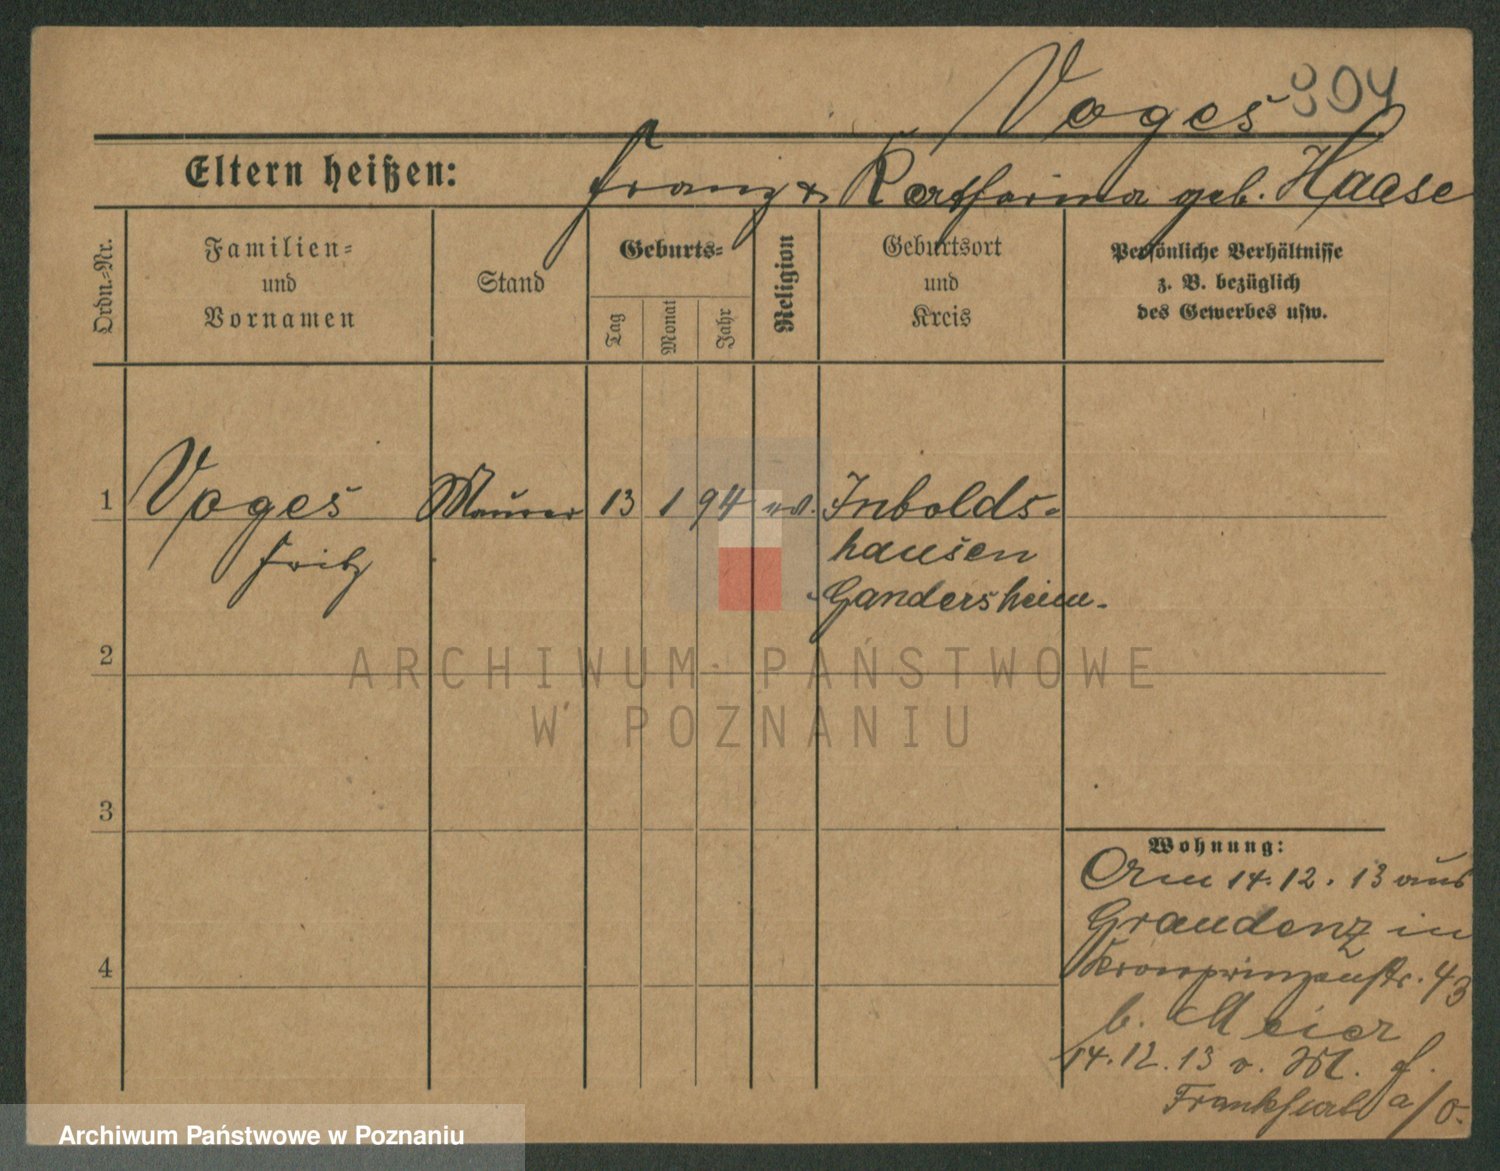 Voges 304
Eltern heißen: Franz & Katharina geb. Haase
Ordn.-Nr.
Familien-
und
Vornamen
Stand
Geburts-
Tag
Monat
Jahr
Religion
Geburtsort
und
Kreis
Persönliche Verhältnisse
z. B. bezüglich
des Gewerbes usw.
1 Voges Maurer 13 1 94 ev. Inbolds-
Fritz hausen
Gandersheim.
2
3
4
ARCHIWUM PAŃSTWOWE
W POZNANIU
Wohnung:
Am 14.12.13 aus
Graudenz in
Kronprinzenstr. 43
b. Meier
14.12.13 v. M.
Frankfurt a/O.
Archiwum Państwowe w Poznaniu